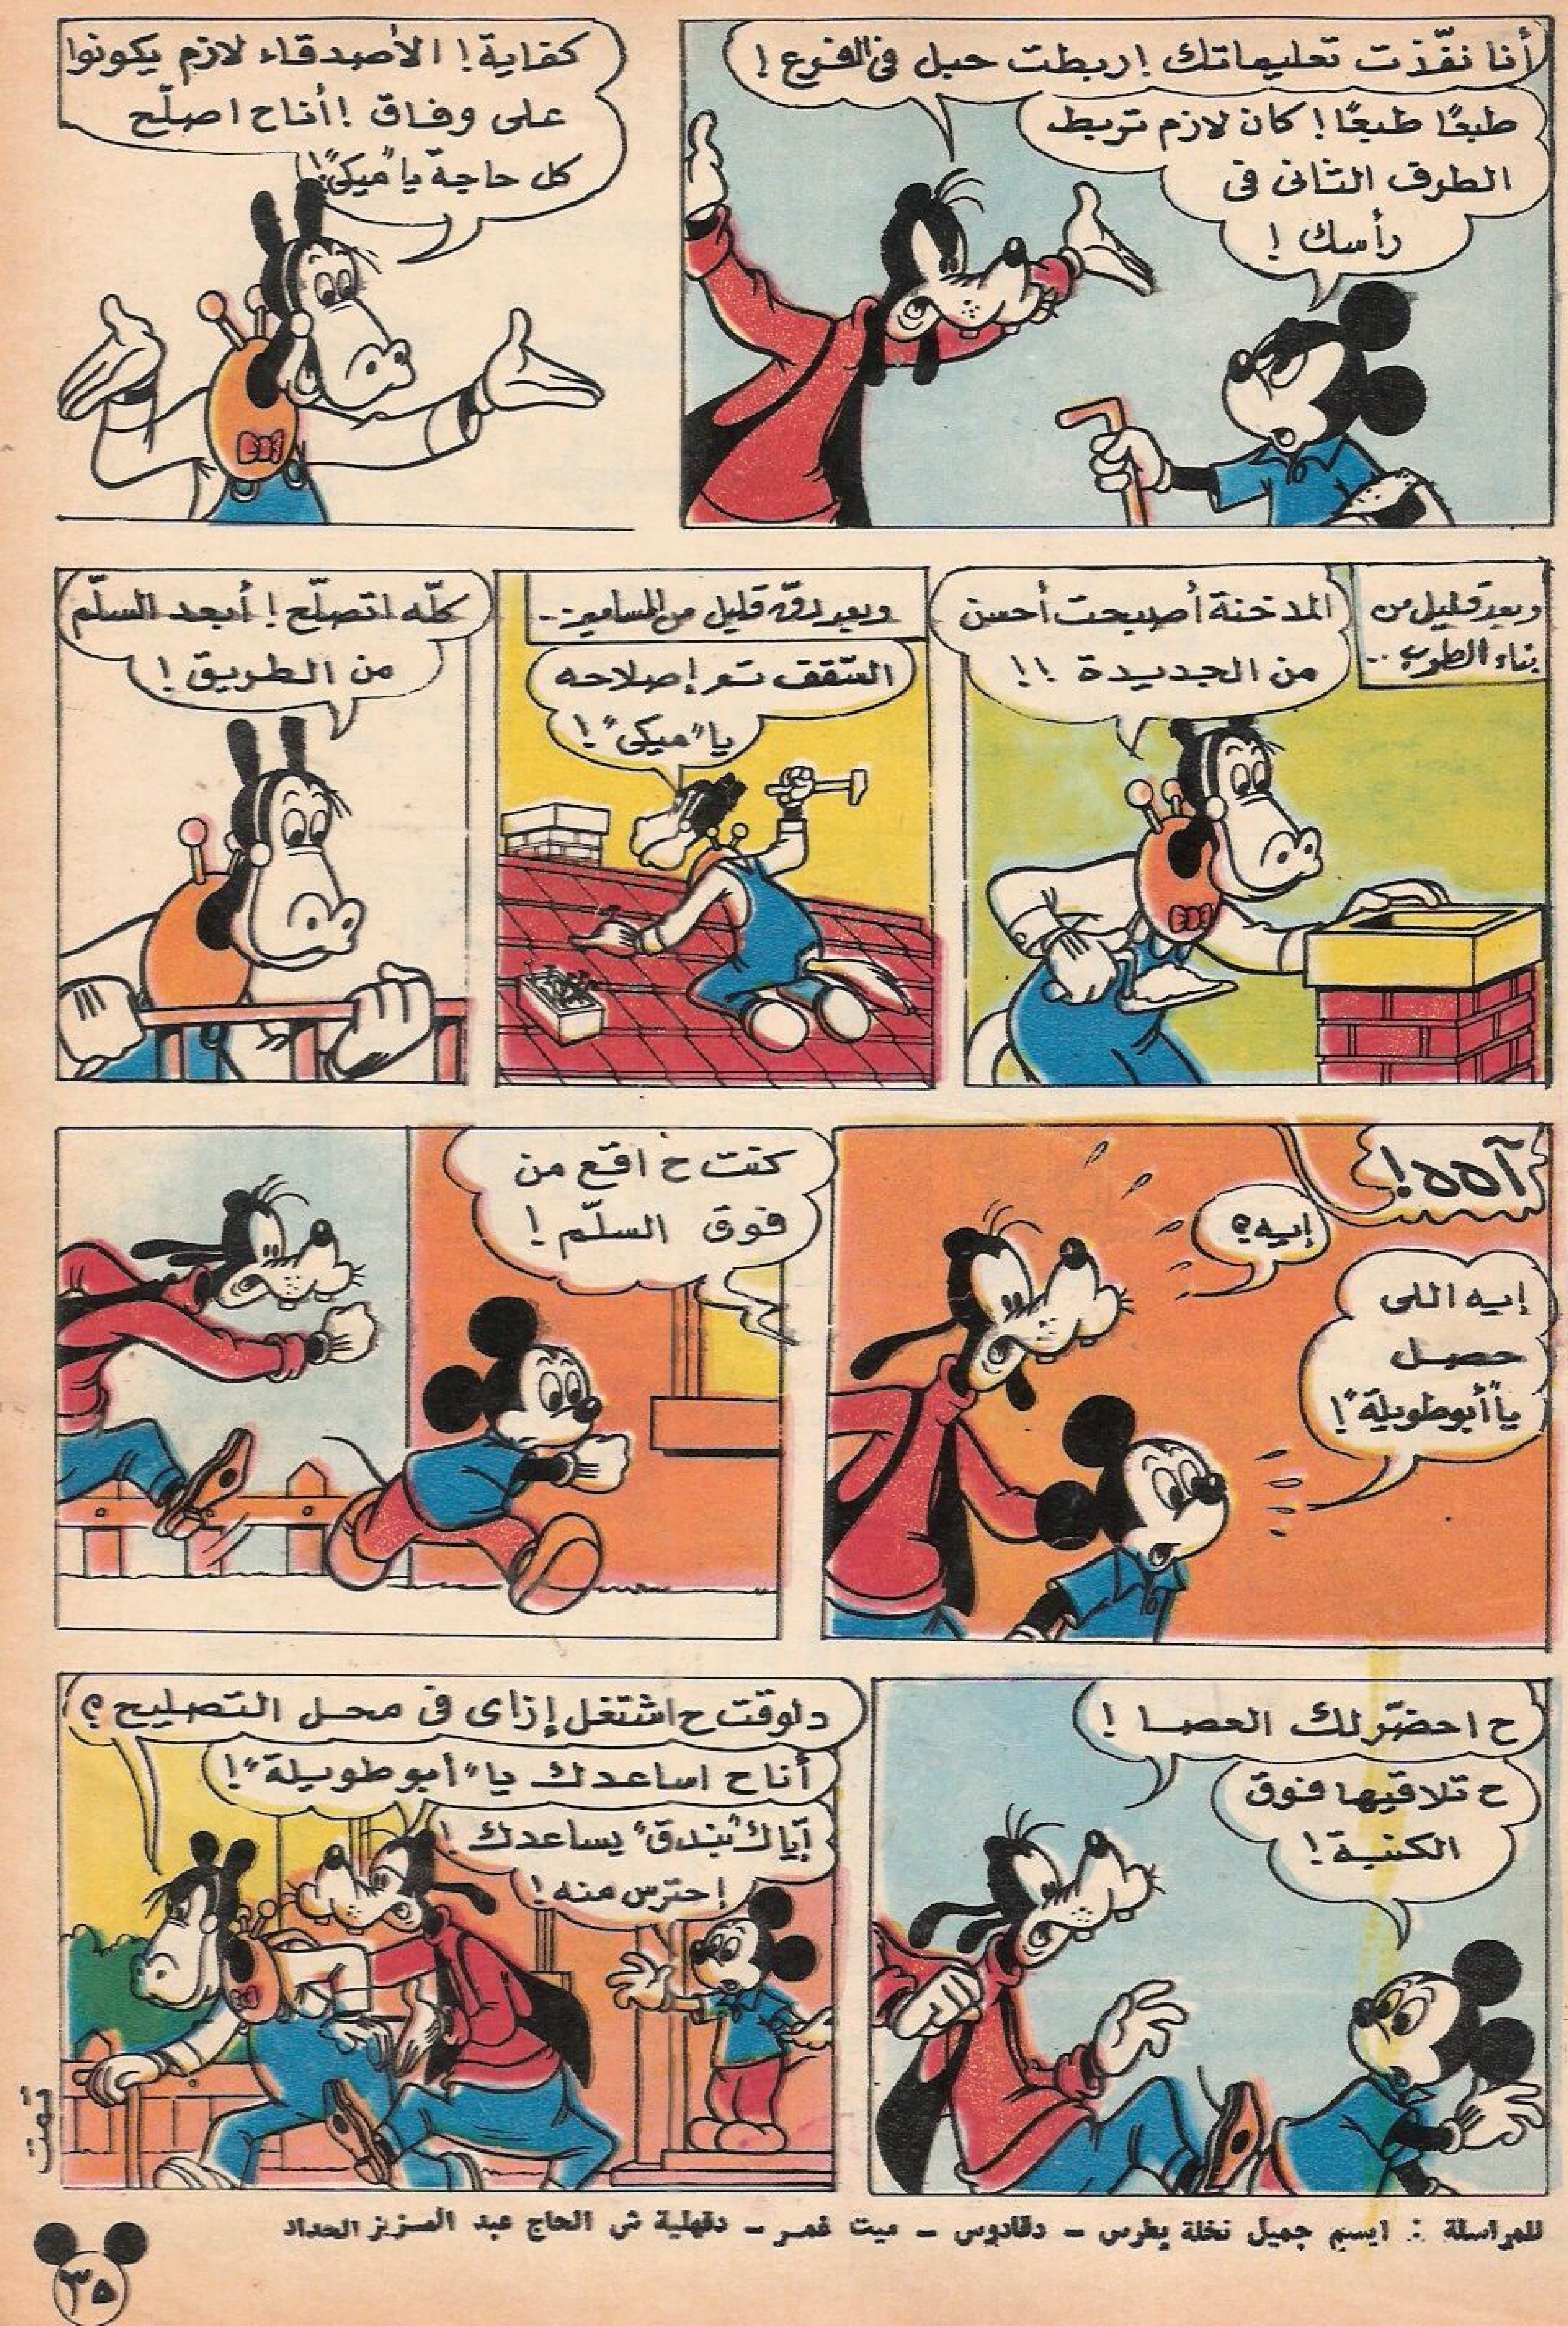 أنا نفّذت تعليماتك ! ربطت حبل فى الفرع !
طبعًا طبعًا ! كان لازم تربط
الطرف التانى فى
رأسك !
كفاية ! الأصدقاء لازم يكونوا
على وفاق ! أنا ح اصلّح
كل حاجة يا "ميكى" !
وبعد قليل من
بناء الطوب ..
المدخنة أصبحت أحسن
من الجديدة !!
وبعد دق قليل من المسامير ..
السّقف تم إصلاحه
يا "ميكى" !
كلّه اتصلّح ! أبعد السلّم
من الطريق !
آههه !
إيه ؟
إيه اللى
حصل
يا "أبو طويلة" !
كنت ح اقع من
فوق السلّم !
ح احضّر لك العصا !
ح تلاقيها فوق
الكنبة !
دلوقت ح اشتغل إزاى فى محل التصليح ؟
أنا ح اساعدك يا "أبو طويلة" !
إيّاك "بندق" يساعدك !
إحترس منه !
تمت
للمراسلة : ايسم جميل نخلة بطرس - دقادوس - ميت غمر - دقهلية ش الحاج عبد العزيز الحداد
٣٥